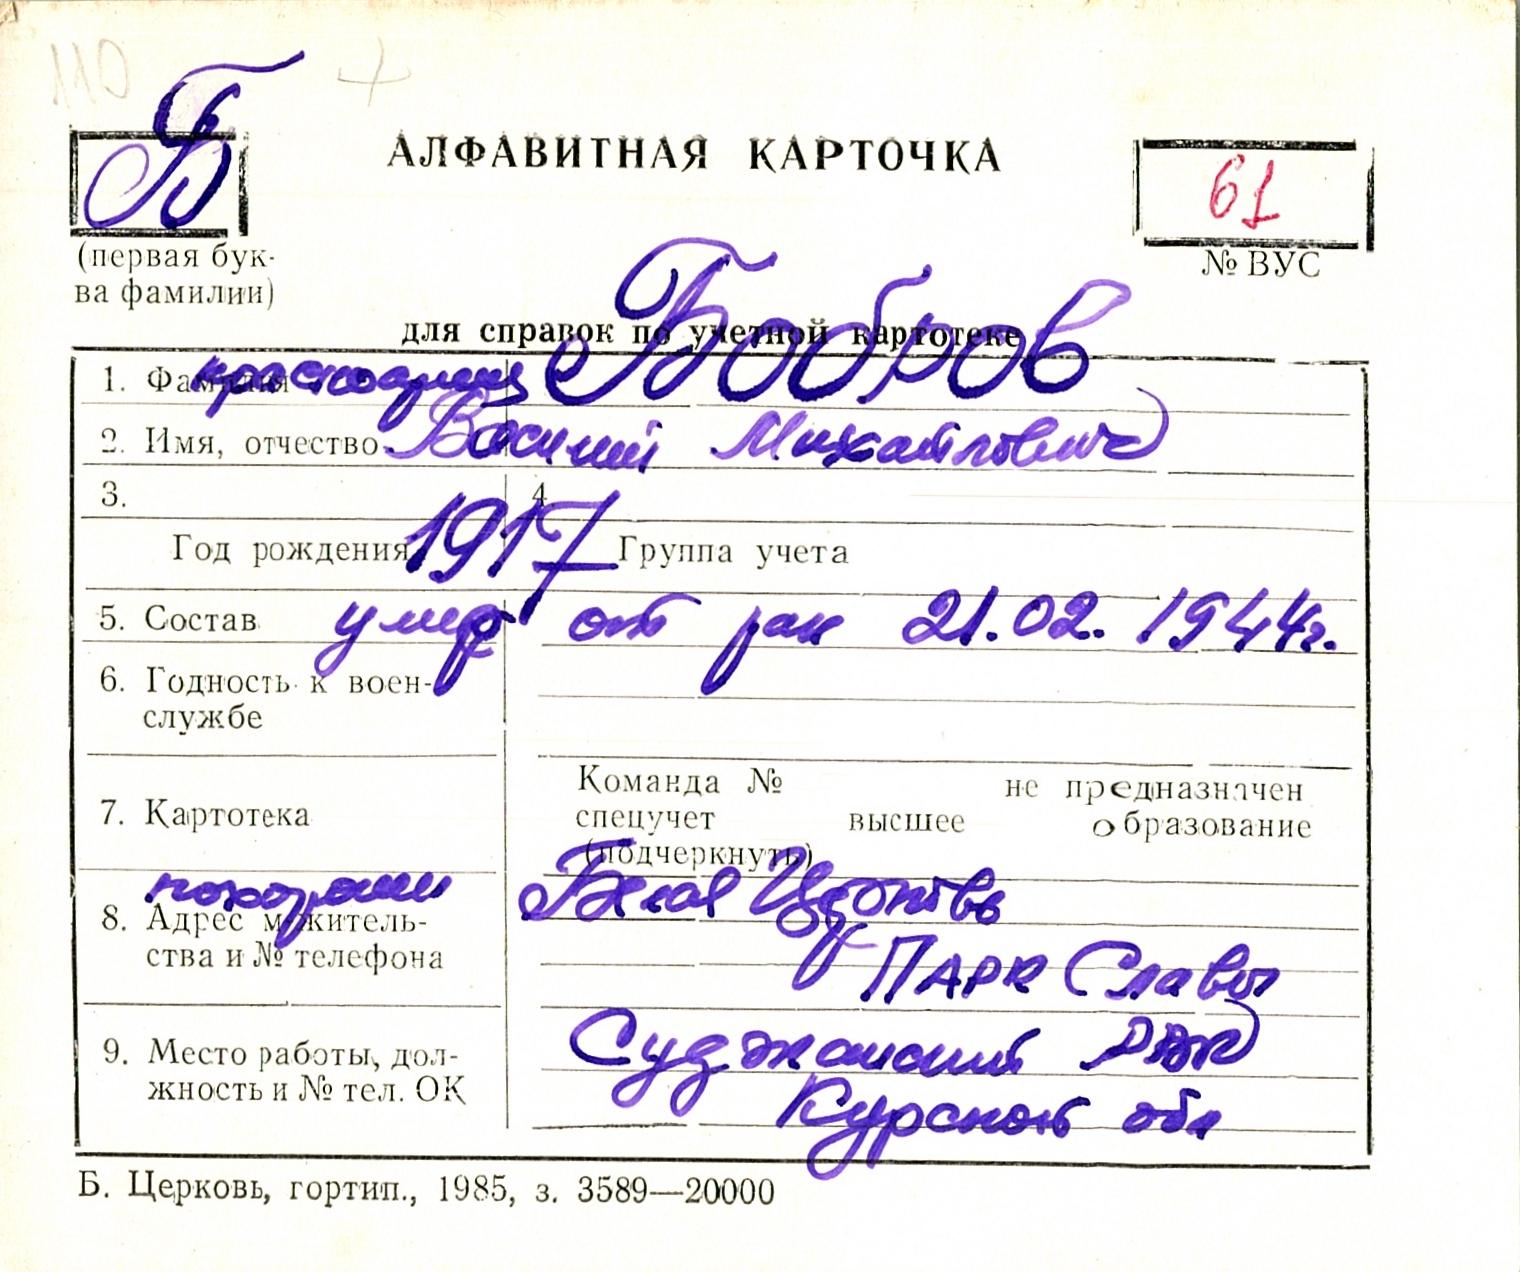 110 +
Б
АЛФАВИТНАЯ КАРТОЧКА
61
(первая бук-
ва фамилии)
№ ВУС
для справок по учетной картотеке
1. Фамилия красноармеец Бобров
2. Имя, отчество Василий Михайлович
3. 4
Год рождения 1917 Группа учета
5. Состав умер от ран 21.02.1944г.
6. Годность к воен-
службе
Команда № не предназначен
7. Картотека спецучет высшее образование
(подчеркнуть)
похоронен Белая Церковь
8. Адрес м житель-
ства и № телефона Парк Славы
9. Место работы, дол- Суджанский РВК
жность и № тел. ОК Курской обл
Б. Церковь, гортип., 1985, з. 3589—20000